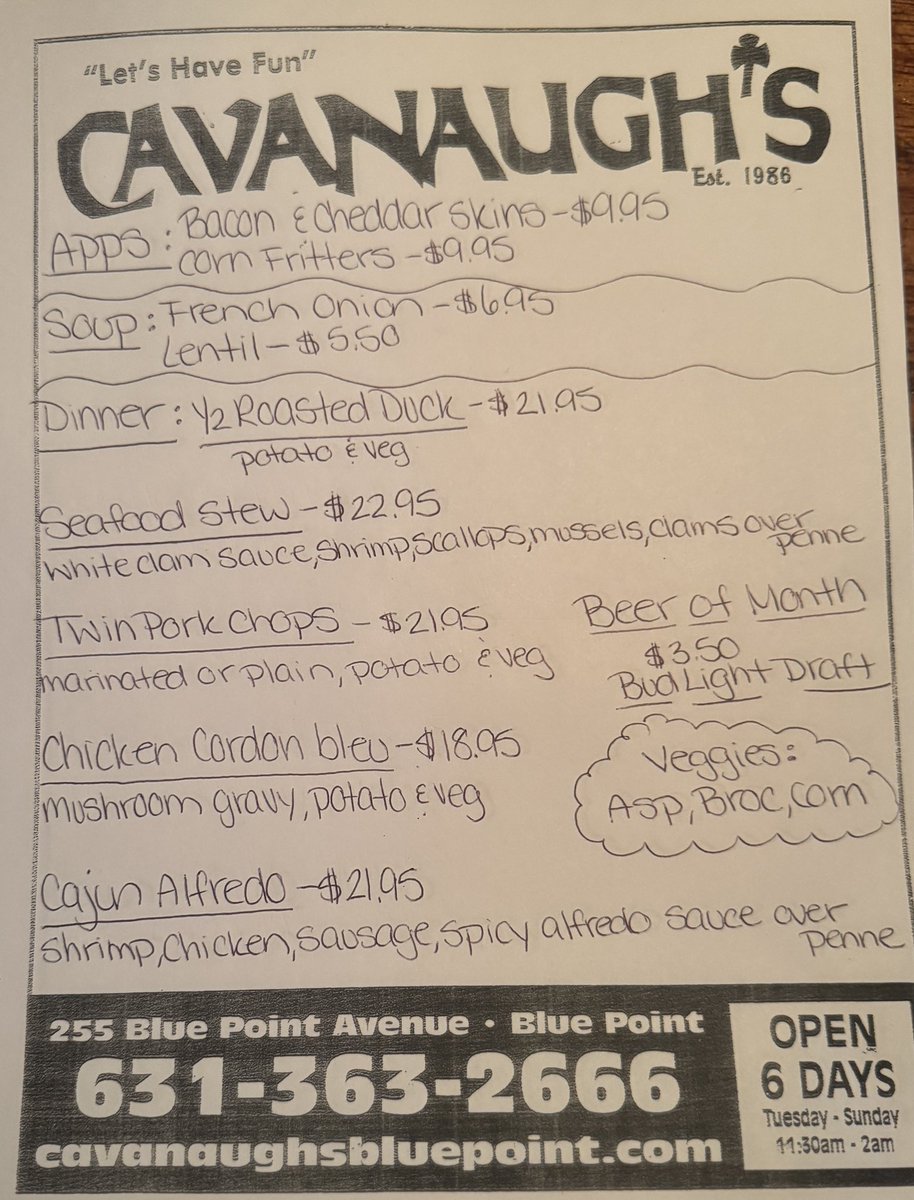 "Let's Have Fun"
CAVANAUGH'S
Est. 1986
APPS: Bacon & Cheddar Skins - $9.95
Corn Fritters - $9.95
Soup: French Onion - $6.95
Lentil - $5.50
Dinner: 1/2 Roasted Duck - $21.95
potato & veg
Seafood Stew - $22.95
white clam sauce, shrimp, scallops, mussels, clams over
penne
Twin Pork Chops - $21.95
marinated or plain, potato & veg
Beer of Month
$3.50
Bud Light Draft
Chicken Cordon bleu - $18.95
mushroom gravy, potato & veg
Veggies:
Asp, Broc, Corn
Cajun Alfredo - $21.95
Shrimp, Chicken, Sausage, Spicy alfredo sauce over
penne
255 Blue Point Avenue • Blue Point
631-363-2666
cavanaughsbluepoint.com
OPEN
6 DAYS
Tuesday - Sunday
11:30am - 2am